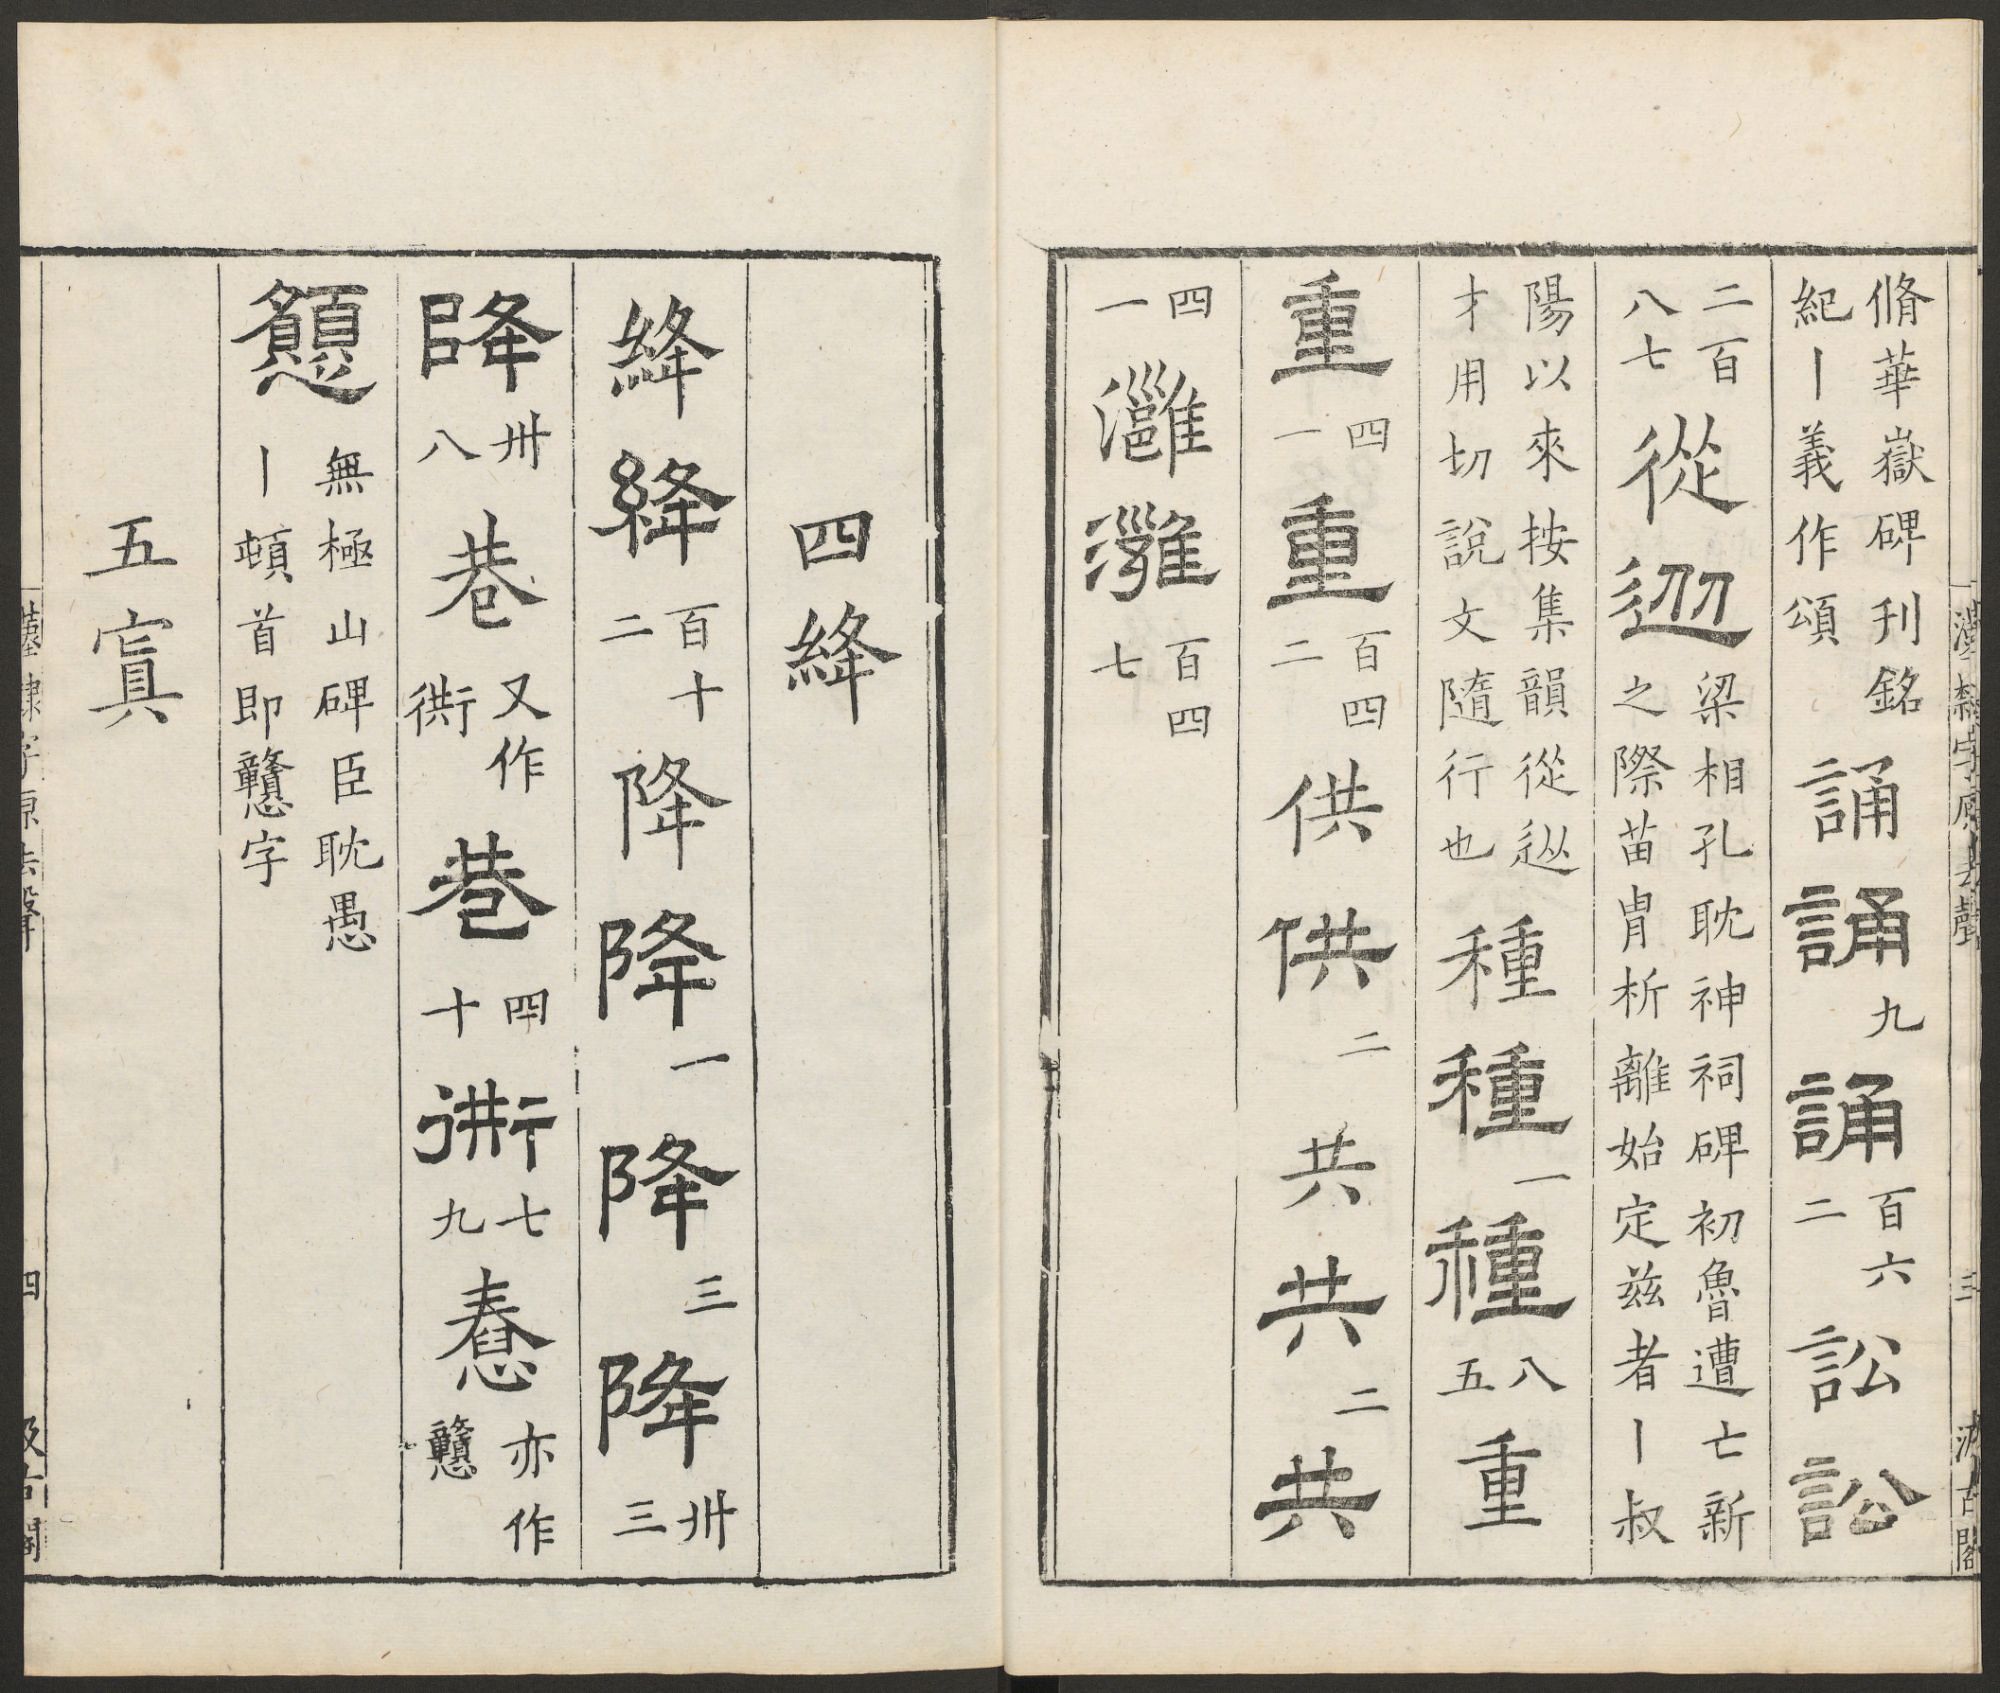 脩華嶽碑刊銘
紀丨義作頌
誦誦九誦百六
二
訟訟
二百
八七
從
梁相孔耽神祠碑初魯遭亡新
之際苗胄析離始定兹者丨叔
陽以來按集韻從迯
才用切說文隨行也
種種一種八
五
重
重四
一
重百四
二
供供二共共二共
四
一
灉灉百四
七
四絳
絳絳百十
二
降降一降三降卅
三
降卅
八
巷又作
衖
巷四
十
衖七
九
惷亦作
戇
無極山碑臣耽愚
丨頓首即戇字
五寘
漢隸字原去聲
三
汲古閣
漢隸字原去聲
四
汲古閣